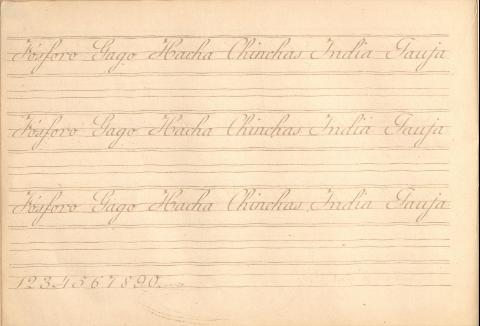 Fósforo Gago Hacha Chinchas India Jauja
Fósforo Gago Hacha Chinchas India Jauja
Fósforo Gago Hacha Chinchas India Jauja
1234567890